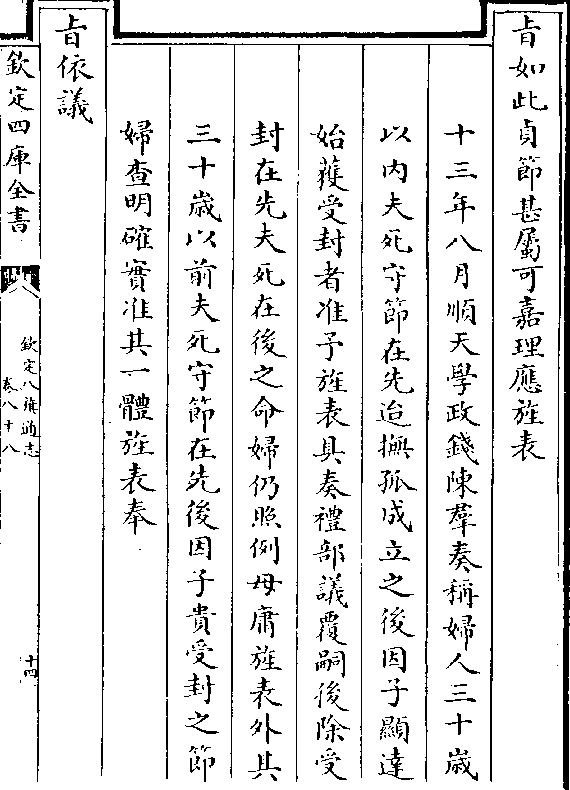 旨如此貞節甚屬可嘉理應旌表
十三年八月順天學政錢陳羣奏稱婦人三十歳
以内夫死守節在先迨撫孤成立之後因子顯達
始獲受封者准予旌表具奏禮部議覆嗣後除受
封在先夫死在後之命婦仍照例毋庸旌表外其
三十歳以前夫死守節在先後因子貴受封之節
婦查明確實准其一體旌表奉
旨依議
欽定四庫全書
欽定八旗通志
卷八十八
十四